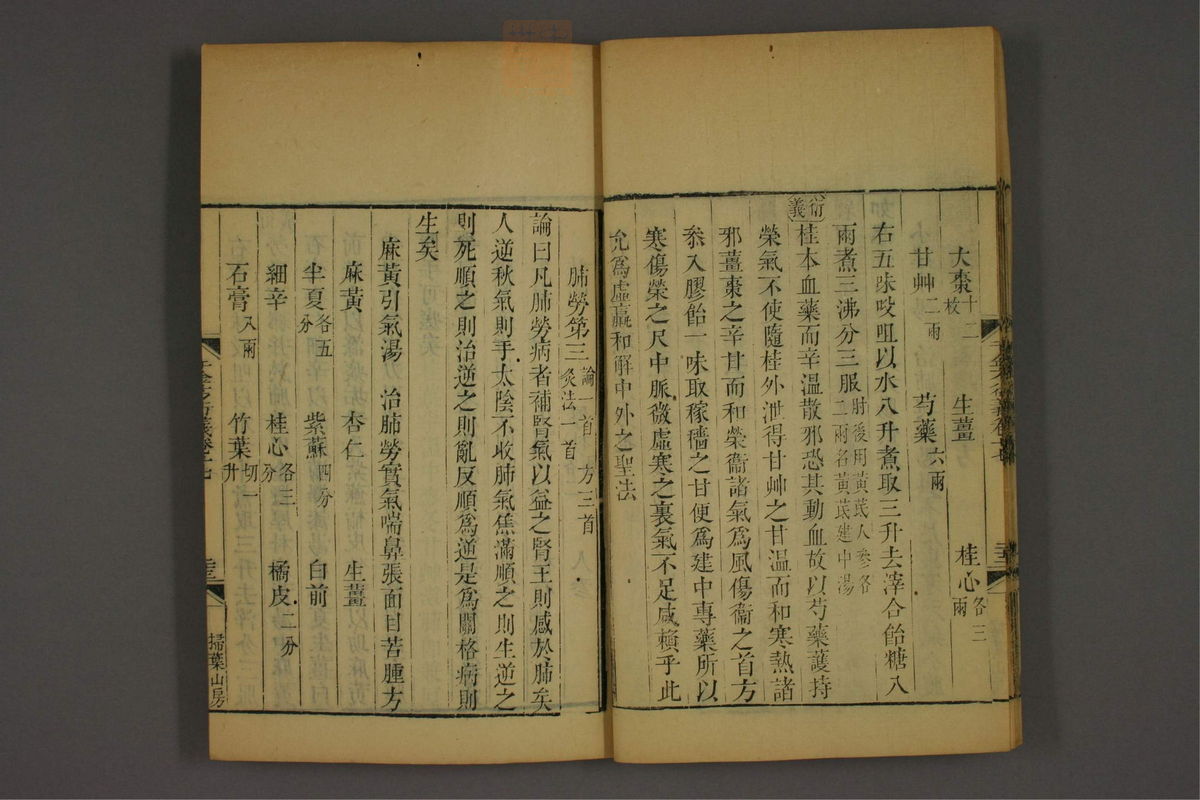 大棗十二枚 生薑 桂心各三兩
甘艸二兩 芍藥六兩
右五味㕮咀以水八升煮取三升去滓合飴糖八
兩煮三沸分三服肘後用黃芪人參各二兩名黃芪建中湯
衍義
桂本血藥而辛溫散邪恐其動血故以芍藥護持
榮氣不使隨桂外泄得甘艸之甘溫而和寒熱諸
邪薑棗之辛甘而和榮衞諸氣爲風傷衞之首方
叅入膠飴一味取稼穡之甘便爲建中專藥所以
寒傷榮之尺中脈微虛寒之裏氣不足咸賴乎此
允爲虛羸和解中外之聖法
肺勞第三論一首 方三首 灸法一首
論曰凡肺勞病者補腎氣以益之腎王則感於肺矣
人逆秋氣則手太陰不收肺氣焦滿順之則生逆之
則死順之則治逆之則亂反順爲逆是爲關格病則
生矣
麻黃引氣湯方 治肺勞實氣喘鼻張面目苦腫方
麻黃 杏仁 生薑
半夏各五分 紫蘇四分 白前
細辛 桂心各三分 橘皮二分
石膏八兩 竹葉切一升
千金方衍義卷十七
三十二
掃葉山房